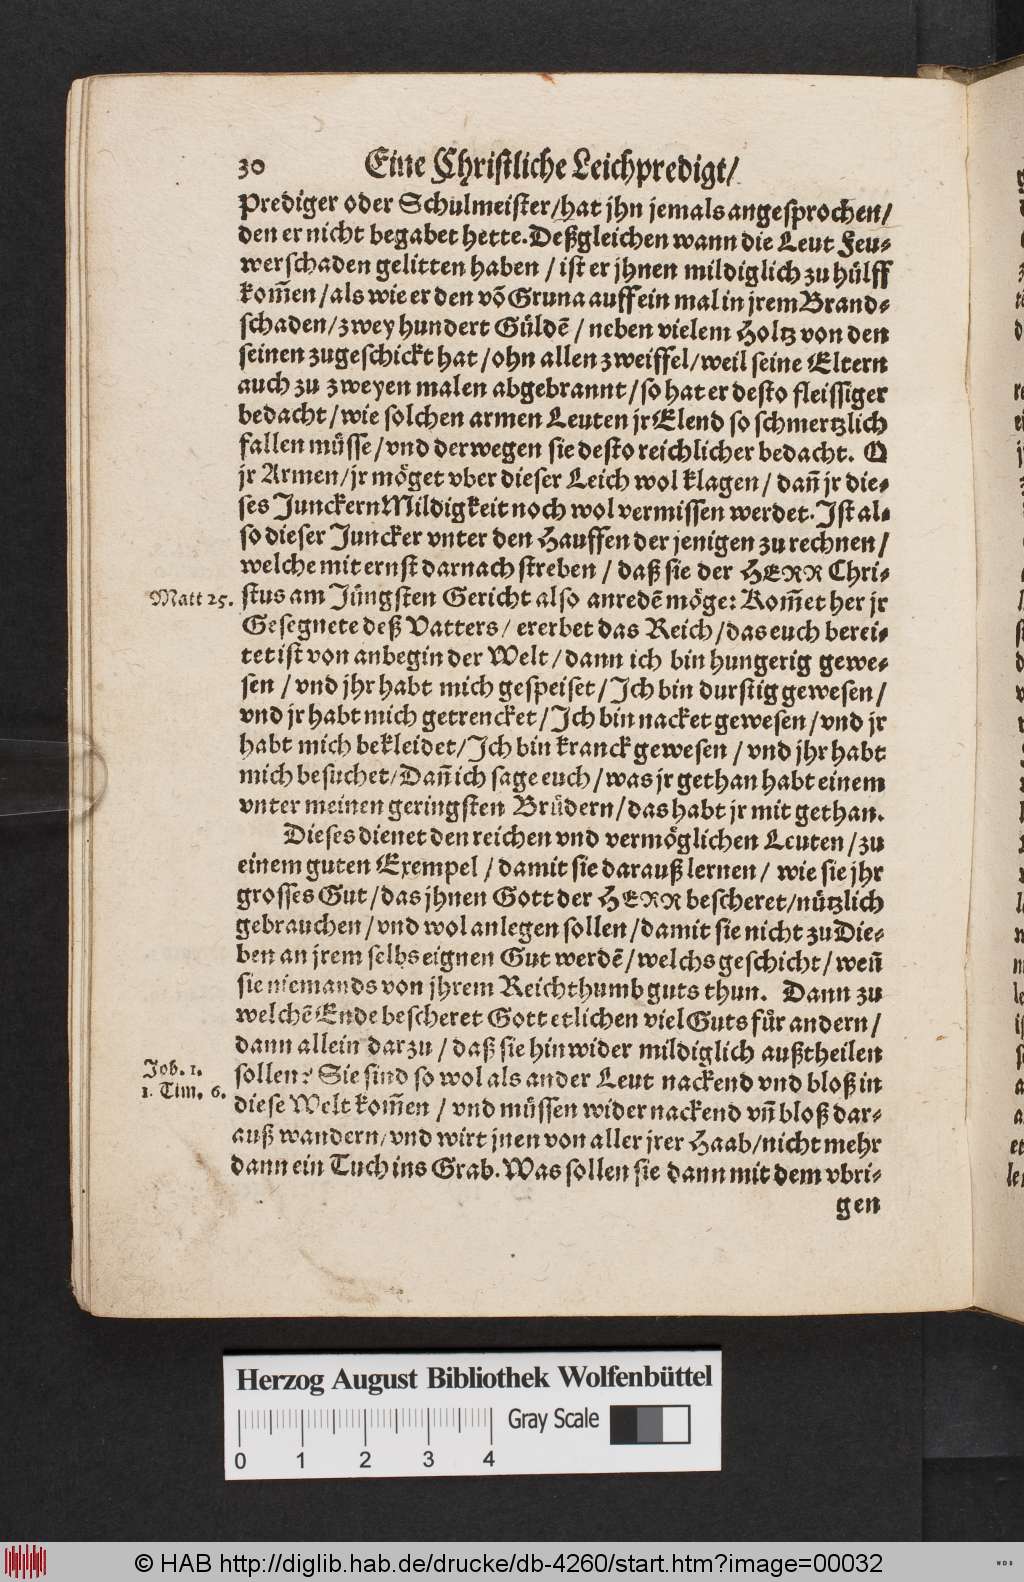 30 Eine Christliche Leichpredigt/
Prediger oder Schulmeister/hat jhn jemals angesprochen/
den er nicht begabet hette. Deßgleichen wann die Leut Feu-
werschaden gelitten haben / ist er jhnen mildiglich zu hülff
kom̃en/als wie er den võ Gruna auff ein mal in jrem Brand-
schaden/zwey hundert Güldẽ / neben vielem Holtz von den
seinen zugeschickt hat/ohn allen zweiffel/weil seine Eltern
auch zu zweyen malen abgebrannt/so hat er desto fleissiger
bedacht/wie solchen armen Leuten jr Elend so schmertzlich
fallen müsse/vnd derwegen sie desto reichlicher bedacht. O
jr Armen/jr möget vber dieser Leich wol klagen/ dañ jr die-
ses Junckern Mildigkeit noch wol vermissen werdet. Ist al-
so dieser Juncker vnter den Hauffen der jenigen zu rechnen/
welche mit ernst darnach streben / daß sie der HERR Chri-
Matt 25. stus am Jüngsten Gericht also anredẽ möge: Kom̃et her jr
Gesegnete deß Vatters/ ererbet das Reich/das euch berei-
tet ist von anbegin der Welt/dann ich bin hungerig gewe-
sen /vnd jhr habt mich gespeiset/Ich bin durstig gewesen/
vnd jr habt mich getrencket/Ich bin nacket gewesen/vnd jr
habt mich bekleidet/Ich bin kranck gewesen / vnd jhr habt
mich besuchet/Dañ ich sage euch/was jr gethan habt einem
vnter meinen geringsten Brüdern/das habt jr mit gethan.
Dieses dienet den reichen vnd vermöglichen Leuten/zu
einem guten Exempel / damit sie darauß lernen/ wie sie jhr
grosses Gut/das jhnen Gott der HERR bescheret/nützlich
gebrauchen/vnd wol anlegen sollen/damit sie nicht zu Die-
ben an jrem selbs eignen Gut werdẽ/welchs geschicht/weñ
sie niemands von jhrem Reichthumb guts thun. Dann zu
welchẽ Ende bescheret Gott etlichen viel Guts für andern/
dann allein darzu / daß sie hinwider mildiglich außtheilen
Job. 1. sollen? Sie sind so wol als ander Leut nackend vnd bloß in
1. Tim. 6. diese Welt kom̃en / vnd müssen wider nackend vñ bloß dar-
auß wandern/vnd wirt jnen von aller jrer Haab/nicht mehr
dann ein Tuch ins Grab. Was sollen sie dann mit dem vbri-
gen
Herzog August Bibliothek Wolfenbüttel
Gray Scale
0 1 2 3 4
© HAB http://diglib.hab.de/drucke/db-4260/start.htm?image=00032